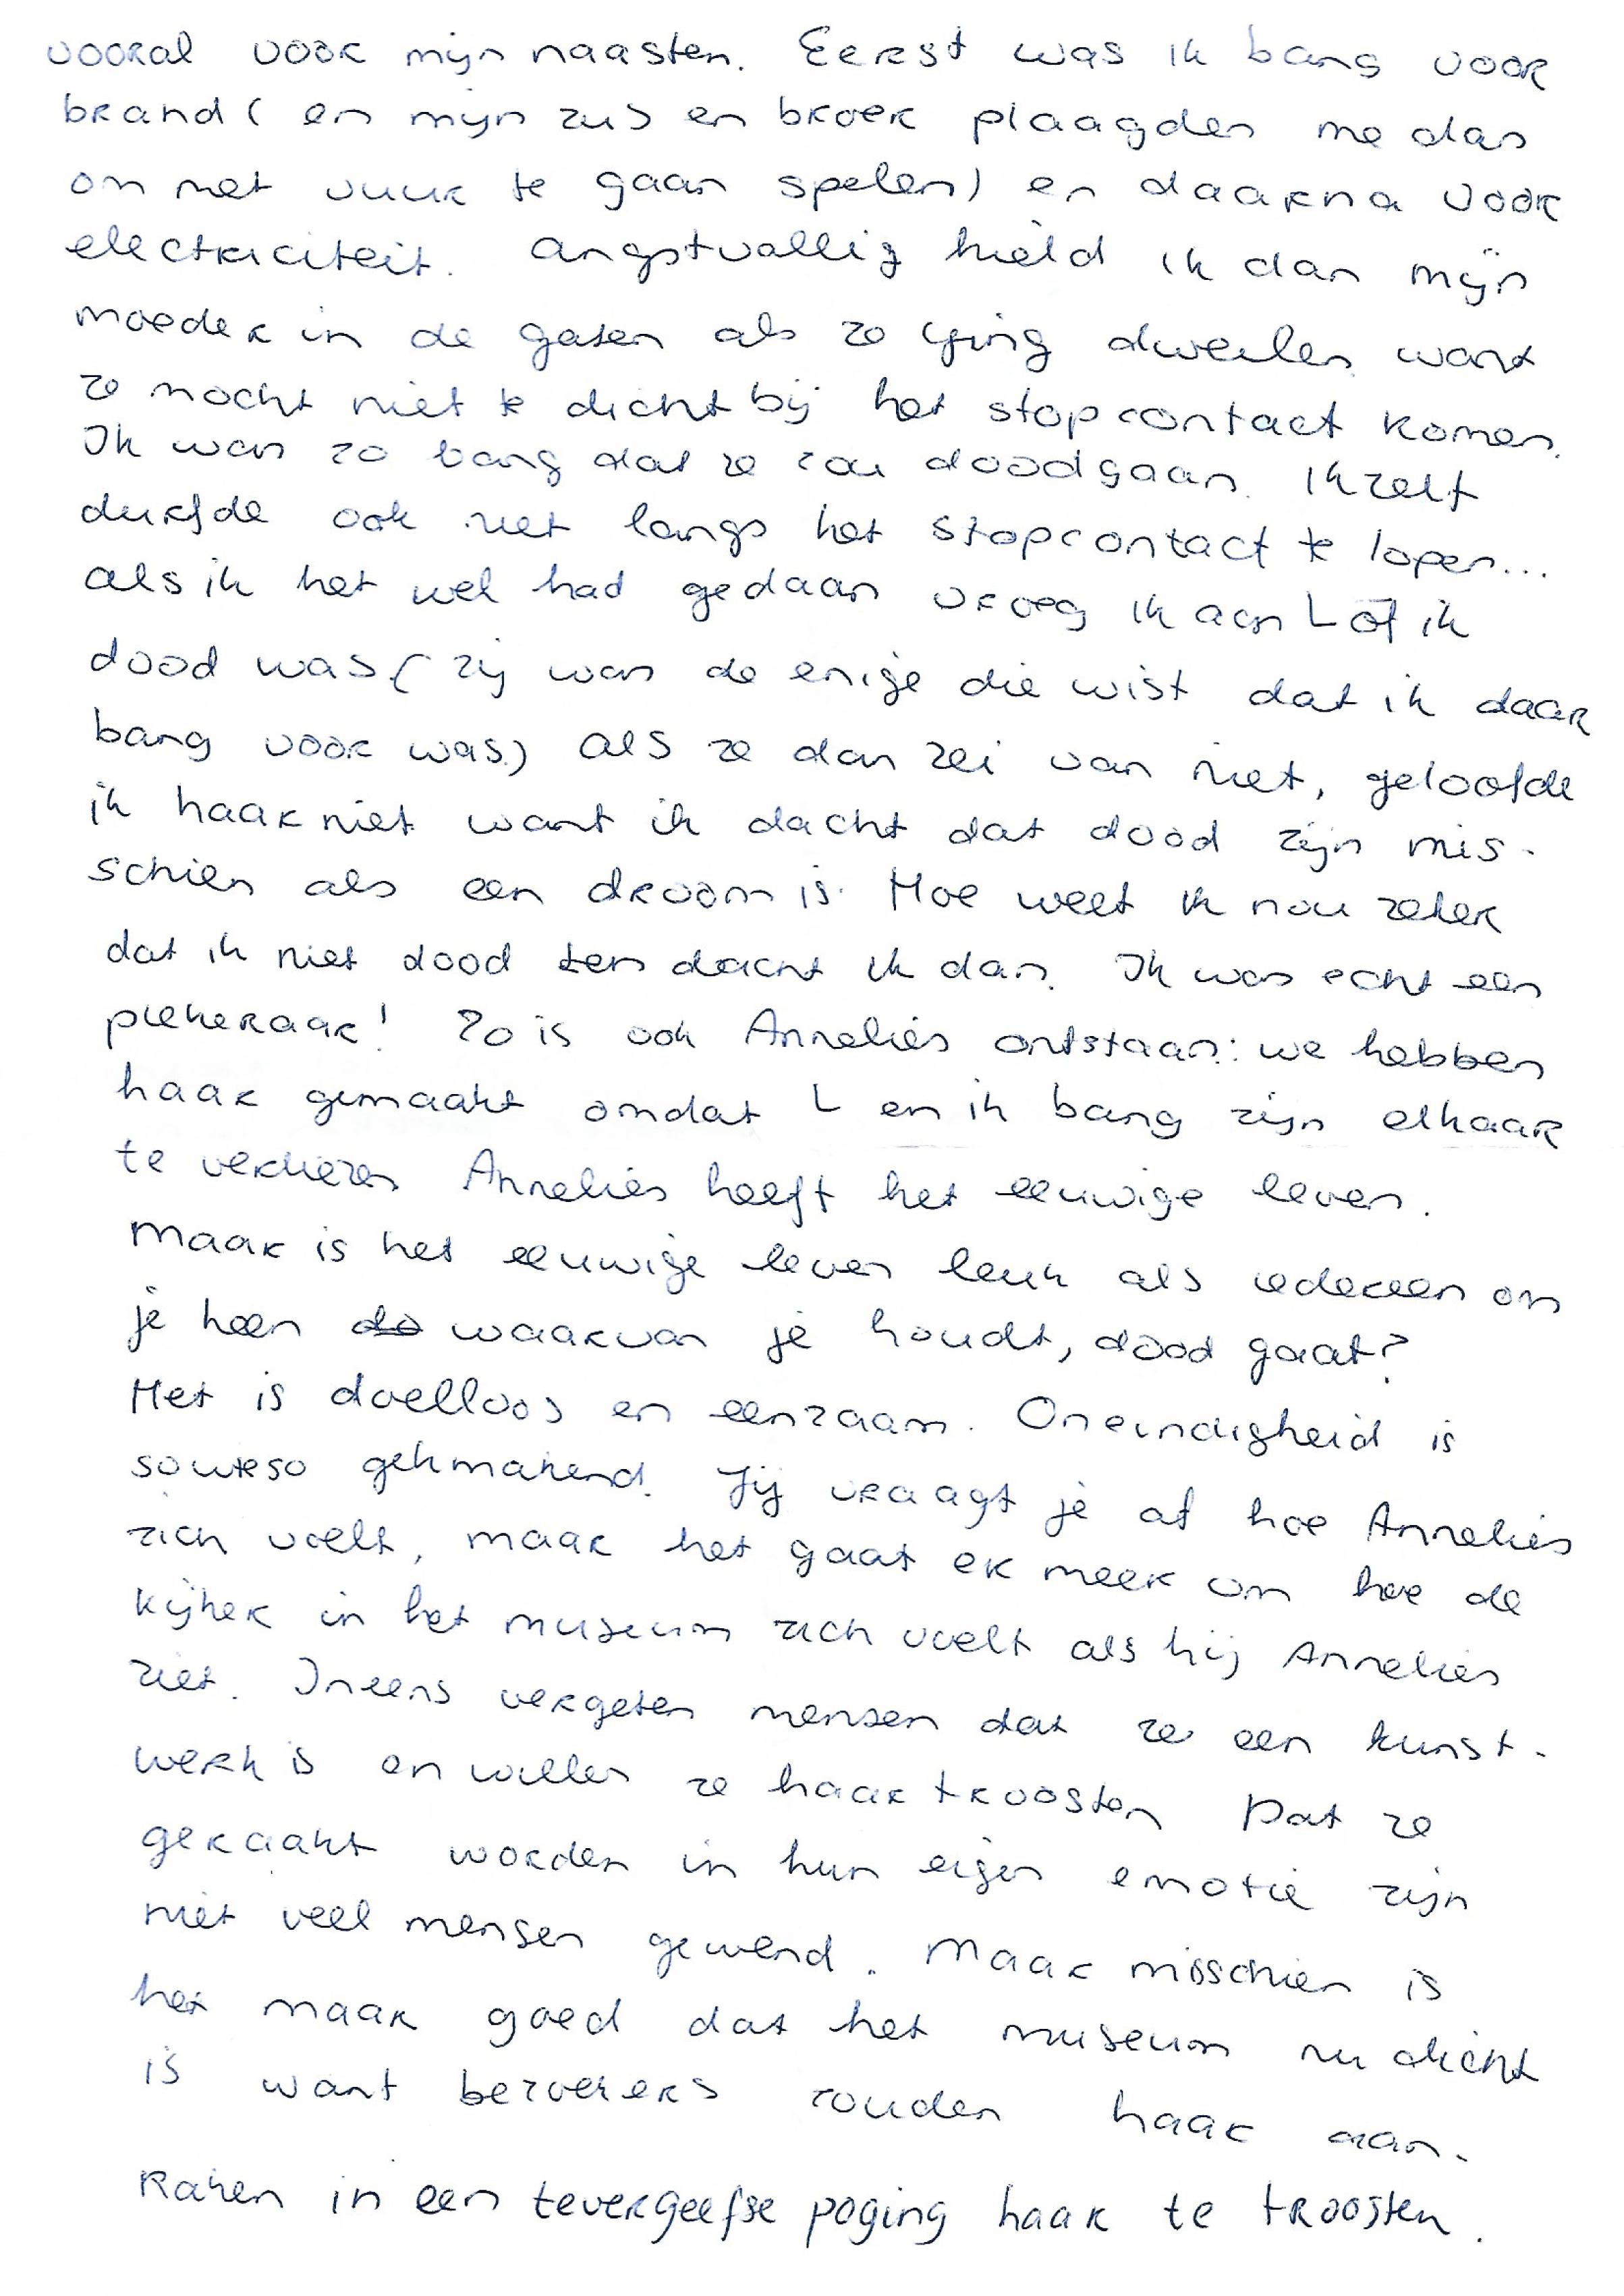 vooral voor mijn naasten. Eerst was ik bang voor
brand (en mijn zus en broer plaagden me dan
om met vuur te gaan spelen) en daarna voor
electriciteit. Angstvallig hield ik dan mijn
moeder in de gaten als ze ging dweilen want
ze mocht niet te dicht bij het stopcontact komen.
Ik was zo bang dat ze zou doodgaan. Ikzelf
durfde ook niet langs het stopcontact te lopen...
als ik het wel had gedaan vroeg ik aan L of ik
dood was (zij was de enige die wist dat ik daar
bang voor was.) Als ze dan zei van niet, geloofde
ik haar niet want ik dacht dat dood zijn mis-
schien als een droom is. Hoe weet ik nou zeker
dat ik niet dood ben dacht ik dan. Ik was echt een
piekeraar! Zo is ook Annelies ontstaan: we hebben
haar gemaakt omdat L en ik bang zijn elkaar
te verliezen Annelies heeft het eeuwige leven.
Maar is het eeuwige leven leuk als iedereen om
je heen do waarvan je houdt, dood gaat?
Het is doelloos en eenzaam. Oneindigheid is
sowieso gekmakend. Jij vraagt je af hoe Annelies
zich voelt, maar het gaat er meer om hoe de
kijker in het museum zich voelt als hij Annelies
ziet. Ineens vergeten mensen dat ze een kunst-
werk is en willen ze haar troosten Dat ze
geraakt worden in hun eigen emotie zijn
niet veel mensen gewend. Maar misschien is
het maar goed dat het museum nu dicht
is want bezoekers zouden haar aan-
raken in een tevergeefse poging haar te troosten.